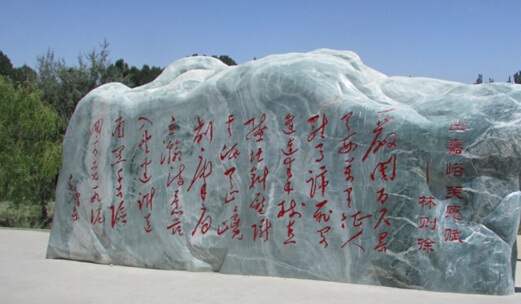 出嘉峪关感赋
林则徐
严关百尺界
天西万里征人
驻马蹄飞阁
遥连秦树直
缭垣斜压陇
云低天山巉
削摩肩
立瀚海苍茫
入望迷谁道
崤函千古险
回看只见一丸泥
毛泽东